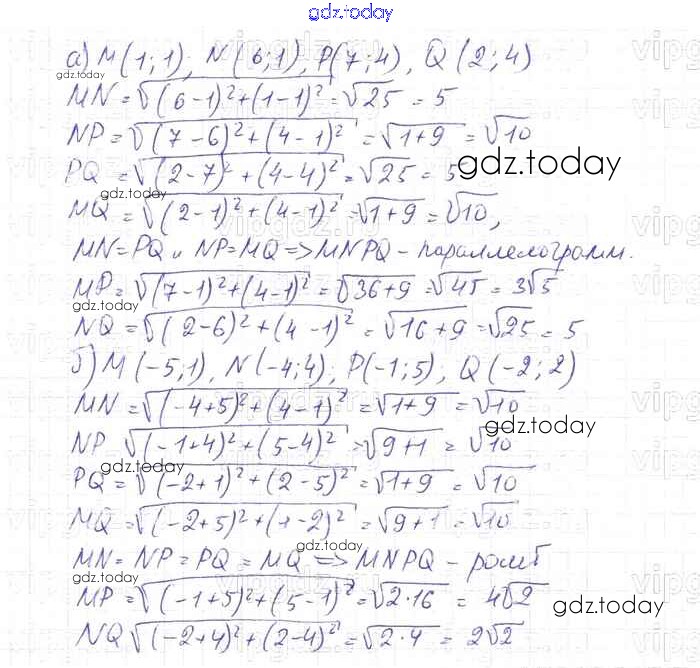 gdz.today
а) M(1;1), N(6;1), P(7;4), Q(2;4)
gdz.today
MN = √((6-1)²+(1-1)²) = √25 = 5
NP = √((7-6)²+(4-1)²) = √1+9 = √10
PQ = √((2-7)²+(4-4)²) = √25 = 5
gdz.today
gdz.today
MQ = √((2-1)²+(4-1)²) = √1+9 = √10,
MN=PQ и NP=MQ => MNPQ - параллелограмм.
MP = √((7-1)²+(4-1)²) = √36+9 = √45 = 3√5
gdz.today
NQ = √((2-6)²+(4-1)²) = √16+9 = √25 = 5
б) M(-5;1), N(-4;4), P(-1;5), Q(-2;2)
gdz.today
MN = √((-4+5)²+(4-1)²) = √1+9 = √10
gdz.today
NP √((-1+4)²+(5-4)²) = √9+1 = √10
gdz.today
PQ = √((-2+1)²+(2-5)²) = √1+9 = √10
MQ = √((-2+5)²+(1-2)²) = √9+1 = √10
gdz.today
MN = NP = PQ = MQ => MNPQ - ромб
gdz.today
MP = √((-1+5)²+(5-1)²) = √2·16 = 4√2
gdz.today
gdz.today
NQ √((-2+4)²+(2-4)²) = √2·4 = 2√2
vipgdz.ru